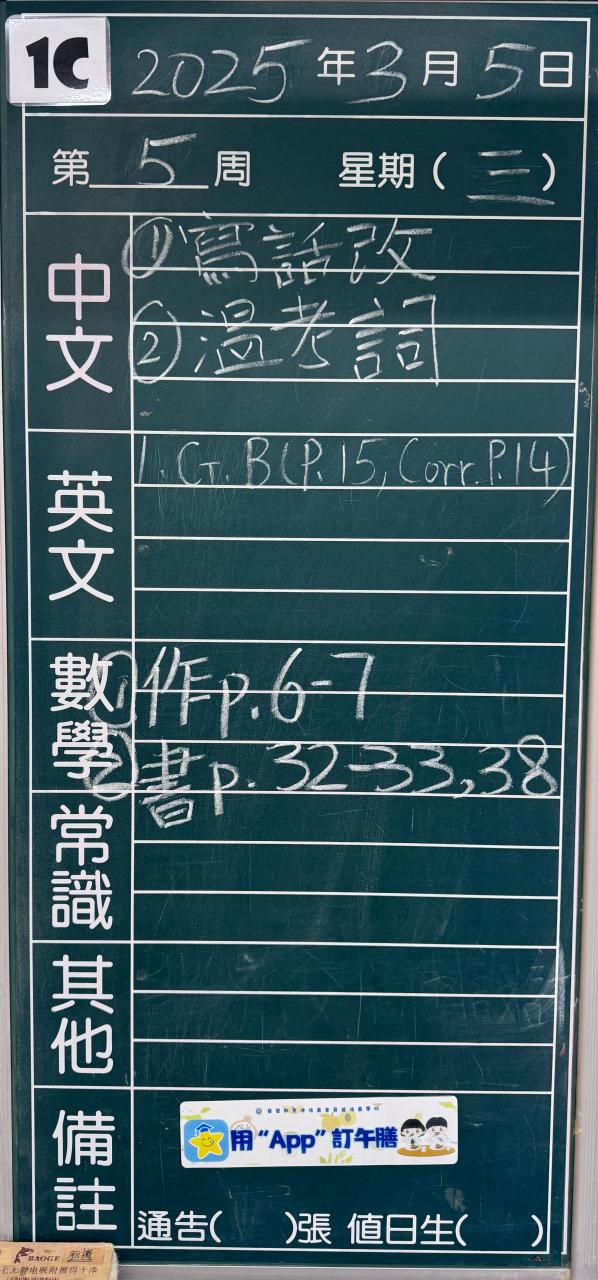 1C
2025年3月5日
第5周 星期(三)
中文
①寫話改
②溫考詞
英文
1. G. B(P.15, Corr. P.14)
數學
①作p.6-7
②書p.32-33,38
常識
其他
備註
用“App”訂午膳
通告( )張 值日生( )
BAOGE